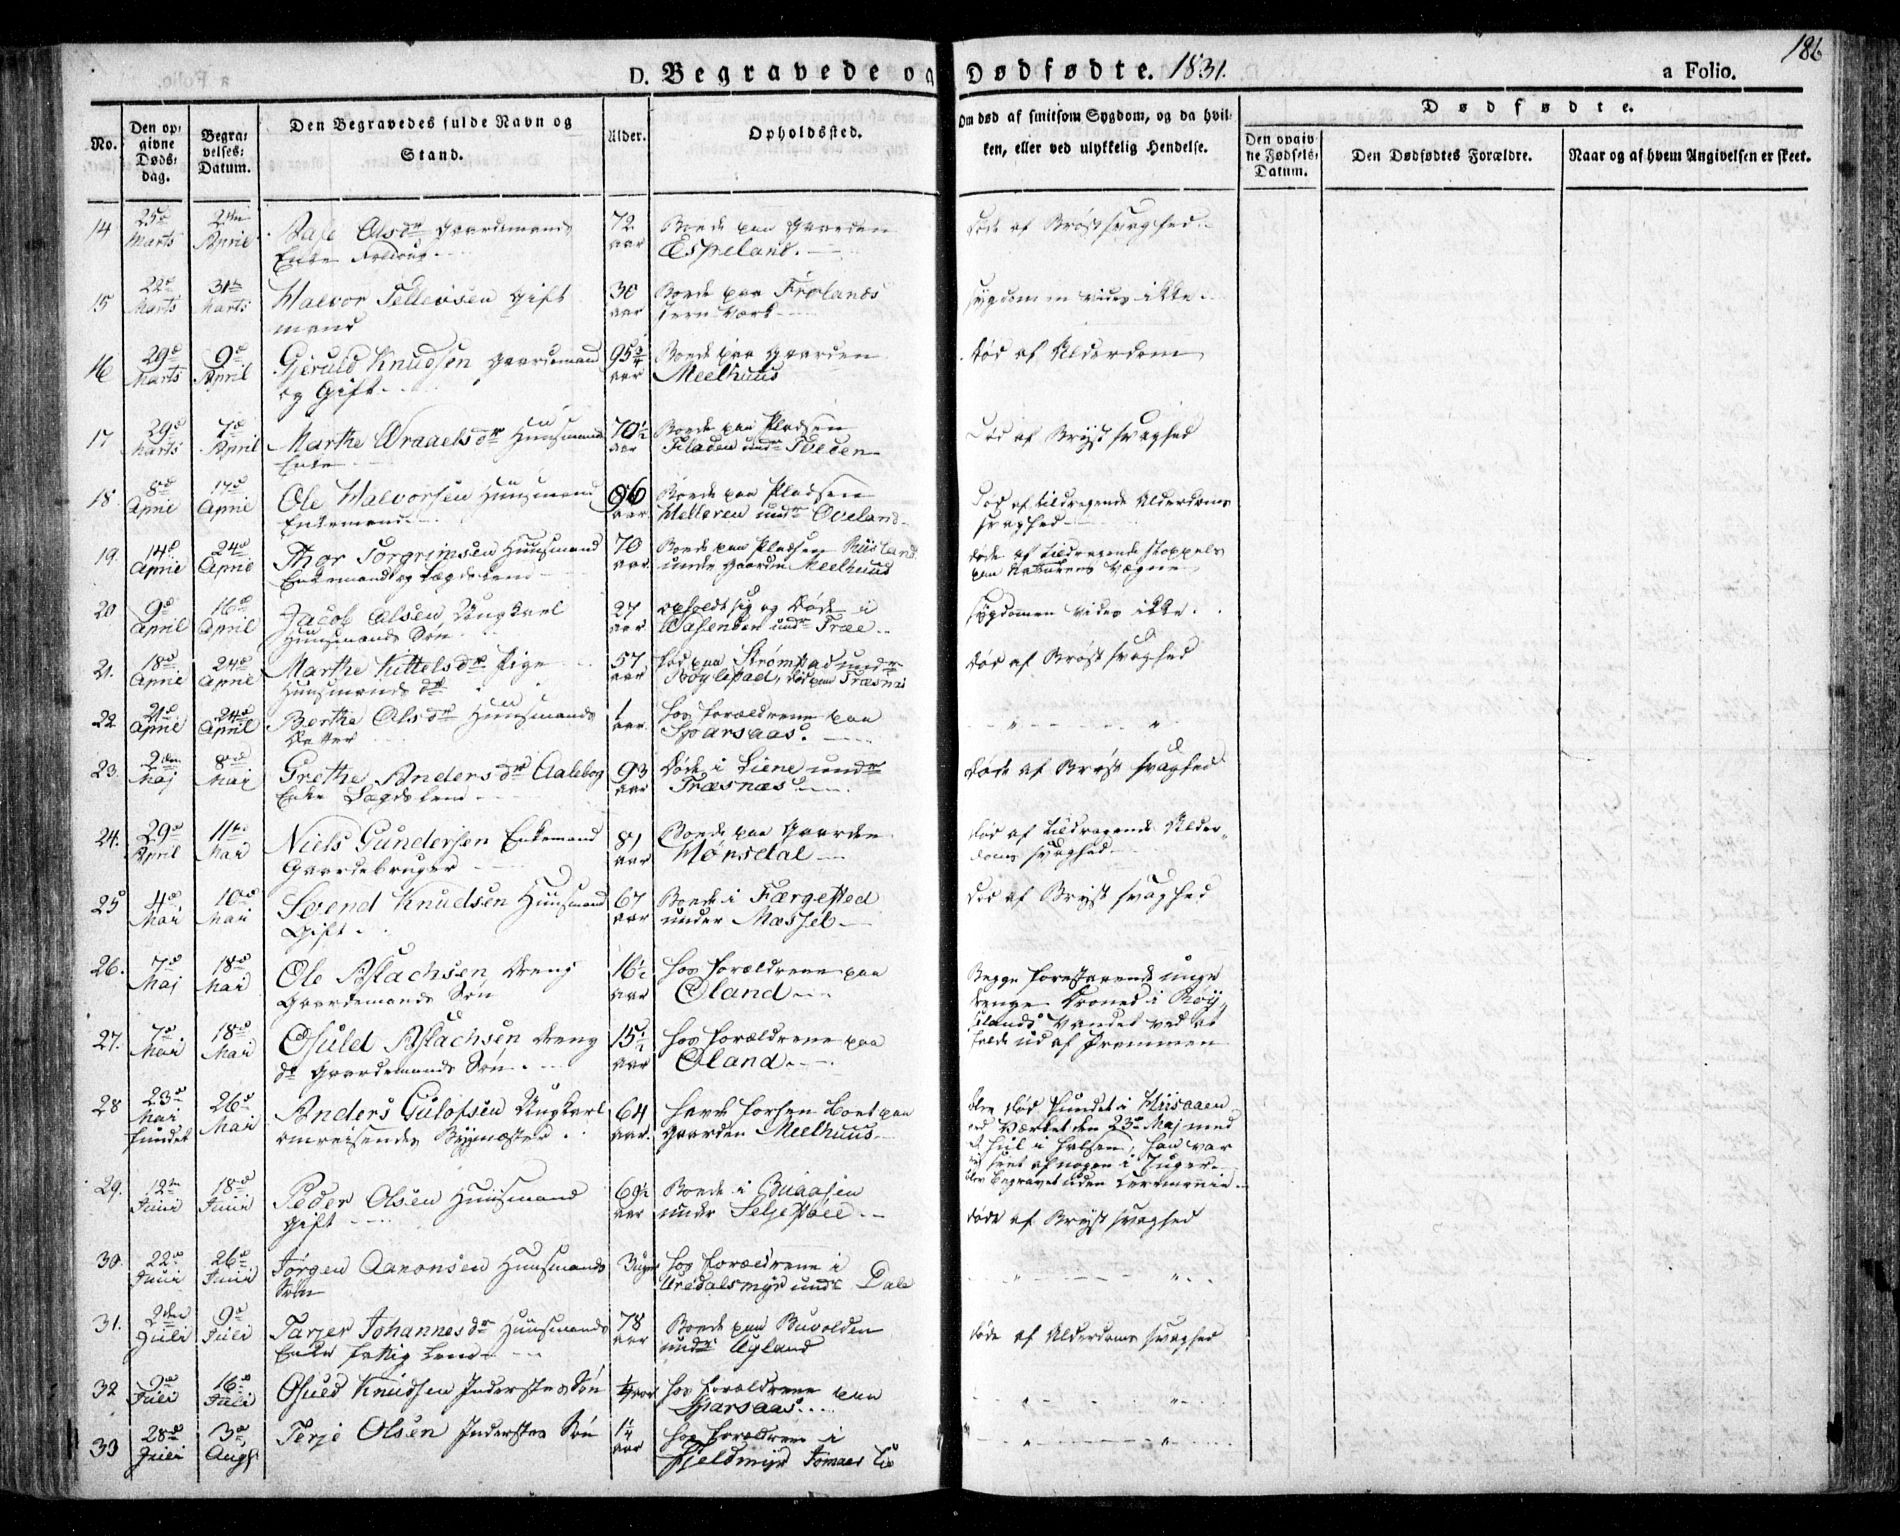 D. Begravede og Dødfødte. 1831.
a Folio.
186
No.
Den opgivne Dødsdag.
Begravelses-Datum.
Den Begravedes fulde Navn og Stand.
Alder.
Opholdssted.
Om død af smitsom Sygdom, og da hvilken, eller ved ulykkelig Hendelse.
Dødfødte.
Den opgivne Fødsels-Datum.
Den Dødfødtes Forældre.
Naar og af hvem Angivelsen er skeet.
14 25d Marts 2den April Olsdr Gaardemands Enke 72 aar Boede paa Gaarden Espeland. døde af Brøstsvaghed.
15 22d Marts 31te Marts Halvor Tellevsen Gift mand 30 aar Boede paa Frolands Jern Værk sygdommen vides ikke.
16 29d Marts 9d April Gjeruld Knudsen Gaardemand og Gift. 95 3/4 aar Boede paa Gaarden Meelhuus død af Alderdom
17 29d Marts 7d April Marthe Wraaelsdr Huusmands Enke 70 1/2 aar Boede paa Pladsen Fladen undr Tveden død af Bryst svaghed
18 8d April 17d April Ole Halvorsen Huusmand Enkemand. 96 aar Boede paa Pladsen Helleren undr Oveland død af tildragende Alderdoms svaghed
19. 14d April 24d April Thor Torgrimsen Huusmand Enkemand og Lægdslem 70 aar Boede paa Pladsen Riisland under Gaarden Meelhuus døde af tildragende stoppelse paa Naturens Vegne
20 9d April 16d April Jacob Olsen Ungkarl Huusmands Søn 27 aar opholdt sig og døde i Vasenden undr Træe sygdommen vides ikke.
21. 18d April 24d April Marthe Kittelsdr Pige Huusmands dr 57 aar Fød paa Strømpad undr Bøylestad, død paa Træsnes død af Brøst svaghed
22 21d April 24d April Berthe Olsdr Huusmands Datter 1 aar. hos forældrene paa Sparsaas. — " — " —
23. 2den Maj 8d Mai Grethe Andersdr Aalebog Enke Lægdslem 93 aar døde i Liene undr Træsnæs døde af Brøst svaghed
24. 29d April 11te Mai Niels Gundersen Enkemand Gaardebruger 81 aar Boede paa Gaarden Mønsdal død af tildragende Alderdoms svaghed
25 4d Mai 10d Mai Svend Knudsen Huusmand Gift 67 aar Boede i Færgested under Mæssel død af Bryst svaghed
26. 7d Maj 18d Mai Ole Aslachsen Dreng Gaardemands Søn 16 1/2 aar hos forældrene paa Oland
27. 7d Mai 18d Mai Osuld Aslachsen Dreng do Gaardemands Søn. 15 1/2 aar hos forældrene paa Oland.
Begge forestaaende unge drenge dronede i Bøylands Vandet ved at falde ud af Prammen
28 23d Mai fundet 26d Mai Anders Gulofsen Ungkarl omreisende Bygmester 64 aar. havde forhen boet paa Gaarden Meelhuus blev død fundet i Hiisaaen ved Værket den 23de Maj med et hul i halsen, han var ej seet af nogen i dager. blev begravet uden Ceremonie.
29. 12te Juni 18d Juni Peder Olsen Huusmand gift 69 1/2 aar Boede i Buaasen under Seljestøel døde af Bryst svaghed
30. 22d Juni 26d Juni Jørgen Aanonsen Huusmands Søn 3 uger hos forældrene i Aredalsmyr undr Dale — " — " —
31. 2den Juli 9d Juli Tarjer Johannesdr Huusmands Enke fattig Lem 78 aar Boede paa Buvolden undr Ayland døde af Alderdoms svaghed
32 9d Juli 16d Juli Osuld Knudsen Inderstes Søn 1/4 aar hos forældrene paa Sparsaas. — " — " —
33 28d Juli 13d Augs Terje Olsen Inderstes Søn 1 1/4 aar hos forældrene i Fjeldmyr — " — " —